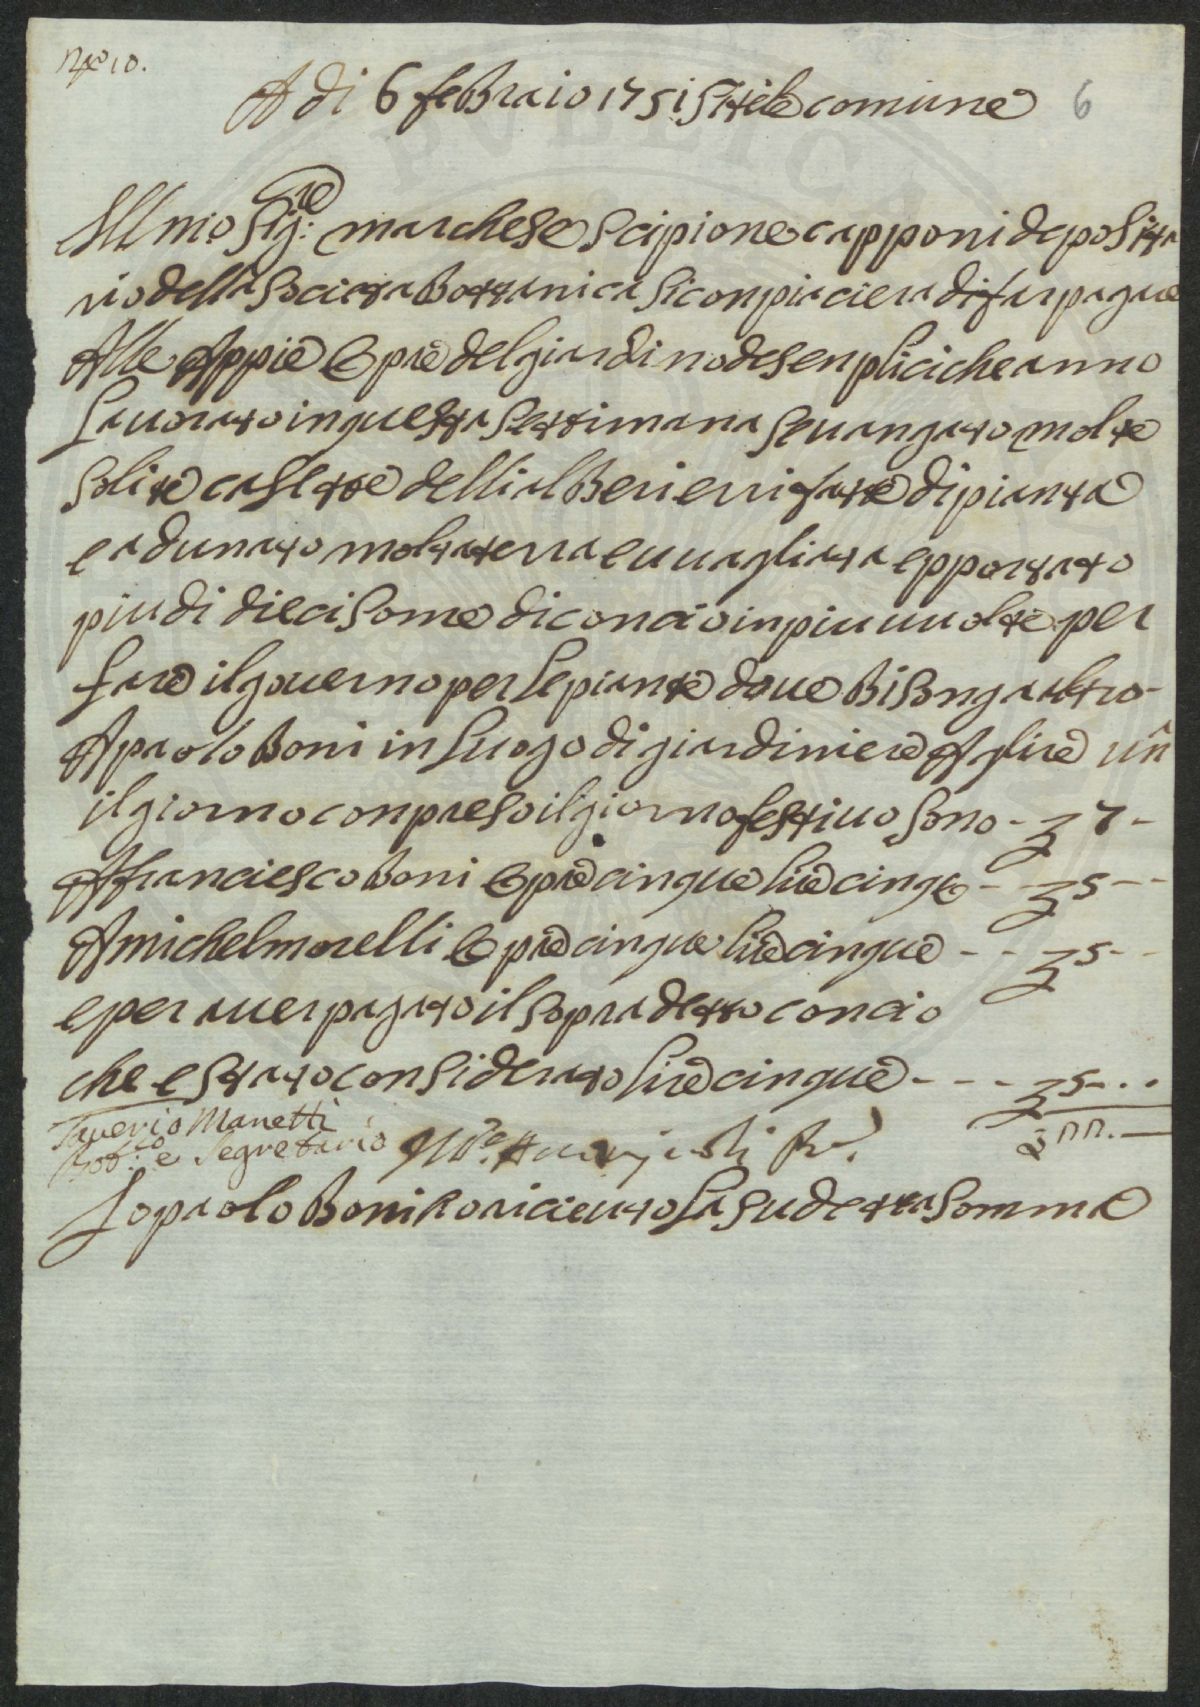 N.o 10.
A di 6 febraio 1751 Stile comune 6
Ill mo Sig:re marchese Scipione capponi deposita
rio della Societa Bottanica si conpiaciera di far pagare
Alle Appiè Opre del giardino de senplici che anno
Lauorato in questa settimana se uangato molte
solite cassette delli alberi e rifatte di pianta
e adunato molta terra e uuagliata e pportato
piu di dieci some di concio in piu uuolte per
fare il gouerno per le piante doue bisongra altro-
A paolo Boni in Luogo di giardiniere A glire un
il giorno conpreso il giorno festiuo sono - 7 -
A franciesco Boni Opre cinque lire cinque - - 5 - -
A michel morelli Opre cinque lire cinque - - 5 - -
e per auer pagato il sopra detto concio
che e stato considerato lire cinque - - - 5 - . .
Sauerio Manetti 22. -
Bot:co e Segretario
Io paolo Boni o riceuto la sudetta somma